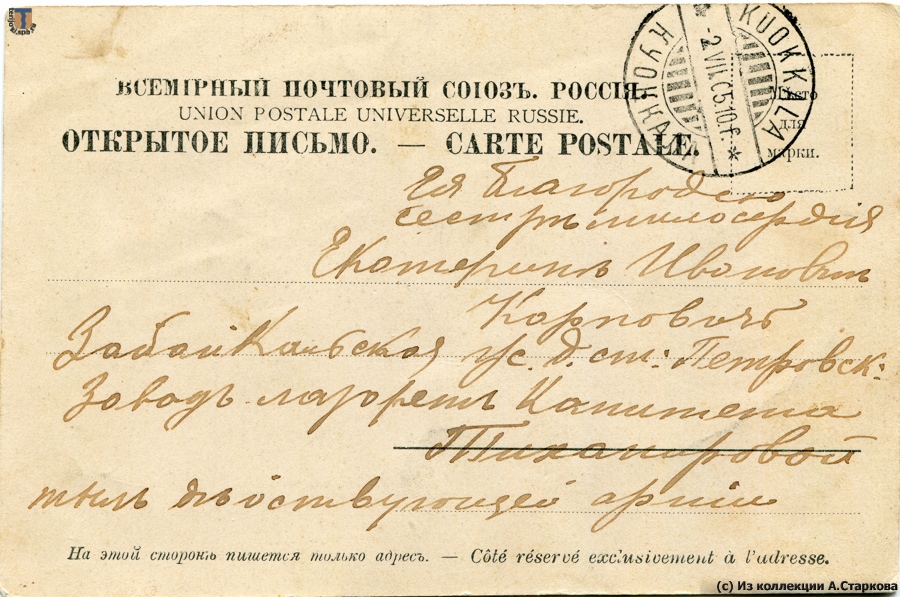 KUOKKALA
-2.VII.05.10.f.
ВСЕМІРНЫЙ ПОЧТОВЫЙ СОЮЗЪ. РОССІЯ.
UNION POSTALE UNIVERSELLE RUSSIE.
ОТКРЫТОЕ ПИСЬМО. — CARTE POSTALE.
Мѣсто
для
марки.
Ея Благородію
сестрѣ милосердія
Екатеринѣ Ивановнѣ
Карповичъ
Забайкальская ж. д. ст: Петровск:
Заводъ лазаретъ
Тихомировой
тылъ дѣйствующей арміи
На этой сторонѣ пишется только адресъ. — Côté réservé exclusivement à l'adresse.
(c) Из коллекции А.Старкова